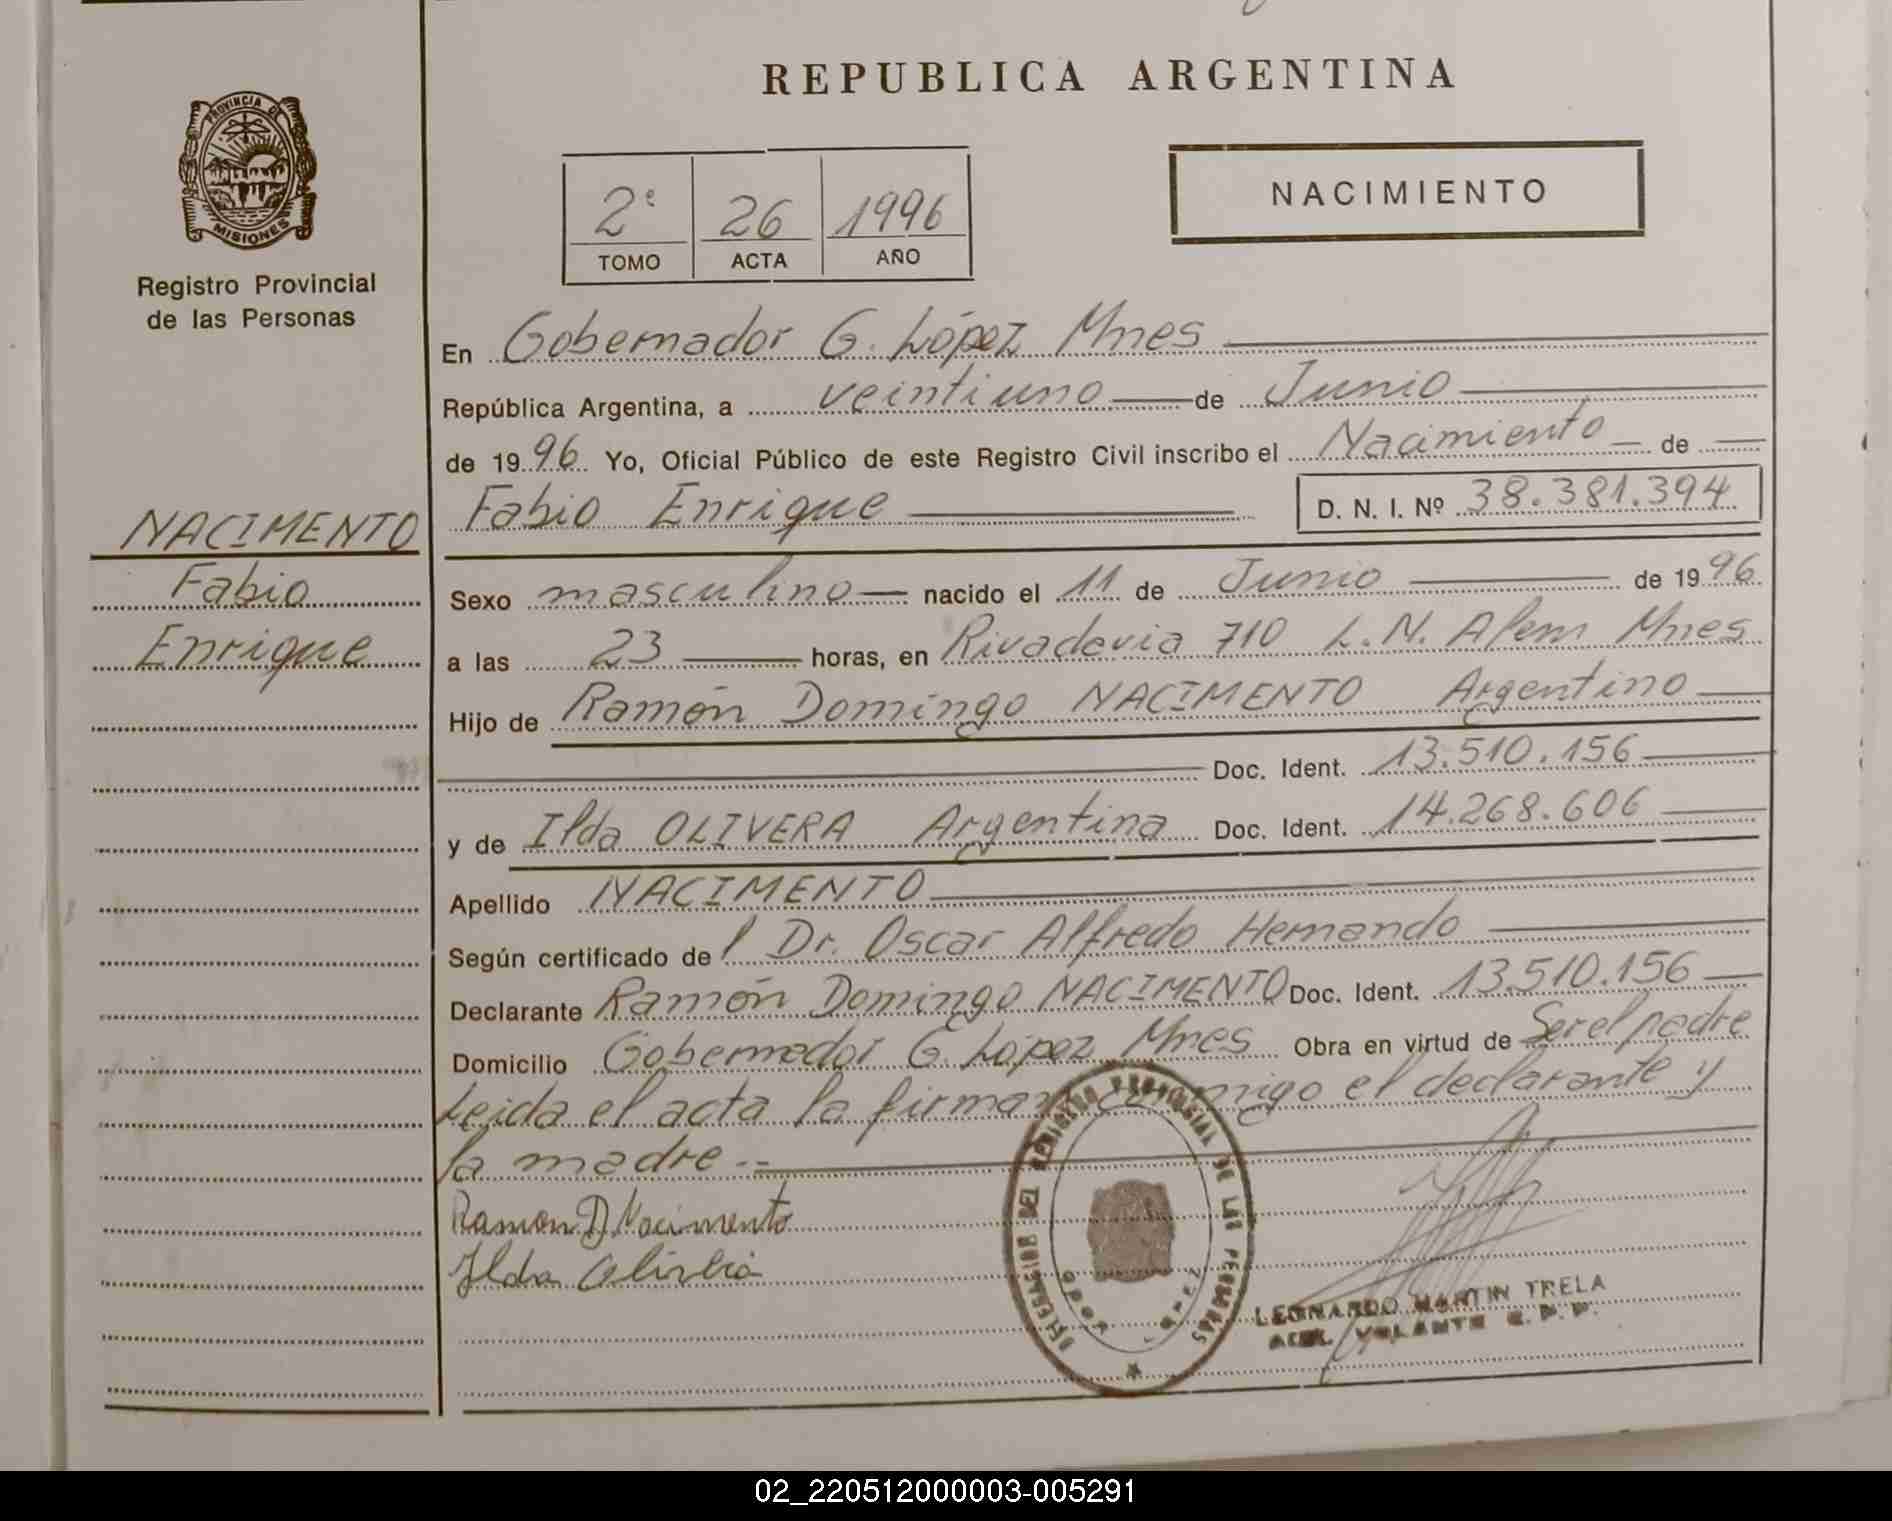 REPUBLICA ARGENTINA
PROVINCIA DE
MISIONES
Registro Provincial
de las Personas
2º 26 1996
TOMO ACTA AÑO
NACIMIENTO
En Gobernador G. López Mnes
República Argentina, a veintiuno de Junio
de 1996 Yo, Oficial Público de este Registro Civil inscribo el Nacimiento de
Fabio Enrique D. N. I. Nº 38.381.394
NACIMENTO
Fabio
Enrique
Sexo masculino nacido el 11 de Junio de 1996
a las 23 horas, en Rivadavia 710 L.N. Alem Mnes
Hijo de Ramón Domingo NACIMENTO Argentino
Doc. Ident. 13.510.156
y de Ilda OLIVERA Argentina Doc. Ident. 14.268.606
Apellido NACIMENTO
Según certificado del Dr. Oscar Alfredo Hernando
Declarante Ramón Domingo NACIMENTO Doc. Ident. 13.510.156
Domicilio Gobernador G. López Mnes Obra en virtud de Ser el padre
Leida el acta la firman conmigo el declarante y
la madre.--
Ramon D Nacimento
Ilda
DELEGACION DEL REGISTRO PROVINCIAL DE LAS PERSONAS
LEONARDO MARTIN TRELA
VOLANTE R.P.P.
02_220512000003-005291